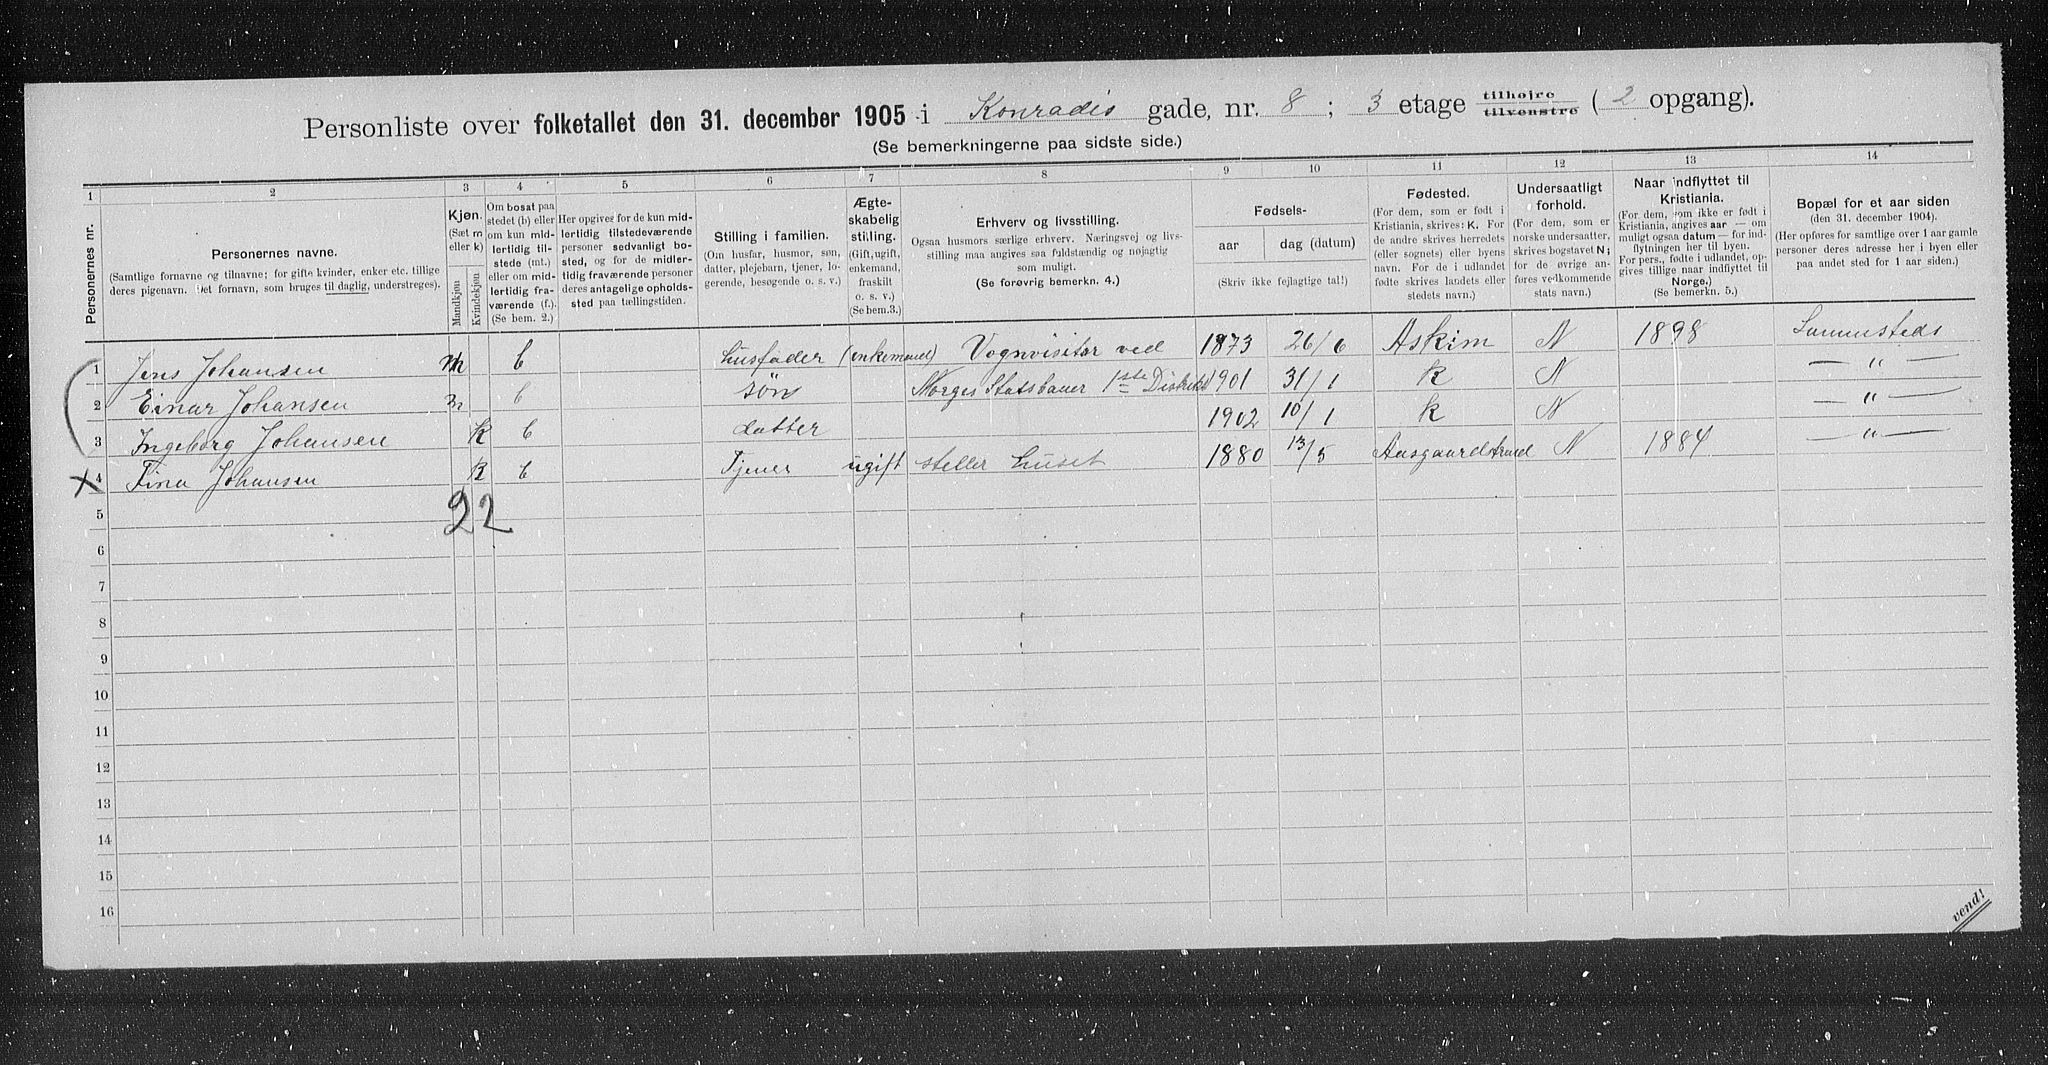 Personliste over folketallet den 31. december 1905 i Konradis gade, nr. 8 ; 3 etage tilhøjre tilvenstre ( 2 opgang).
(Se bemerkningerne paa sidste side.)
1 2 3 4 5 6 7 8 9 10 11 12 13 14
Personernes nr.
Personernes navne.
(Samtlige fornavne og tilnavne; for gifte kvinder, enker etc. tillige
deres pigenavn. Det fornavn, som bruges til daglig, understreges).
Kjøn.
(Sæt m
eller k)
Mandkjøn
Kvindekjøn
Om bosat paa
stedet (b) eller
om kun mid-
lertidig til-
stede (mt.)
eller om mid-
lertidig fra-
værende (f.).
(Se bem. 2.)
Her opgives for de kun mid-
lertidig tilstedeværende
personer sedvanligt bo-
sted, og for de midler-
tidig fraværende personer
deres antagelige opholds-
sted paa tællingstiden.
Stilling i familien.
(Om husfar, husmor, søn,
datter, plejebarn, tjener, lo-
gerende, besøgende o. s. v.)
Ægte-
skabelig
stilling.
(Gift, ugift,
enkemand,
fraskilt
o. s. v.)
(Se bem.3.)
Erhverv og livsstilling.
Ogsaa husmors særlige erhverv. Næringsvej og livs-
stilling maa angives saa fuldstændig og nøjagtig
som muligt.
(Se forøvrig bemerkn. 4.)
Fødsels-
aar dag (datum)
(Skriv ikke fejlagtige tal!)
Fødested.
(For dem, som er født i
Kristiania, skrives: K. For
de andre skrives herredets
(eller sognets) eller byens
navn. For de i udlandet
fødte skrives landets eller
stedets navn.)
Undersaatligt
forhold.
(For dem, som er
norske undersaatter,
skrives bogstavet N;
for de øvrige an-
føres vedkommende
stats navn.)
Naar indflyttet til
Kristiania.
(For dem, som ikke er født i
Kristiania, angives aar — om
muligt ogsaa datum — for ind-
flytningen her til byen.
For pers., fødte i udlandet, op-
gives tillige naar indflyttet til
Norge.)
(Se bemerkn. 5.)
Bopæl for et aar siden
(den 31. december 1904).
(Her opføres for samtlige over 1 aar gamle
personer deres adresse her i byen eller
paa andet sted for 1 aar siden.)
1 Jens Johansen m b husfader (enkemand) Vognvisitør ved 1873 26/6 Askim N 1898 Sammesteds
2 Einar Johansen m b søn Norges Statsbaner 1ste Distrikt 1901 31/1 K N — „ —
3 Ingeborg Johansen k b datter 1902 10/1 K N — „ —
x 4 Fina Johansen k b Tjener ugift steller huset 1880 13/5 Aasgaardstrand N 1884 — „ —
22
5
6
7
8
9
10
11
12
13
14
15
16
vend!